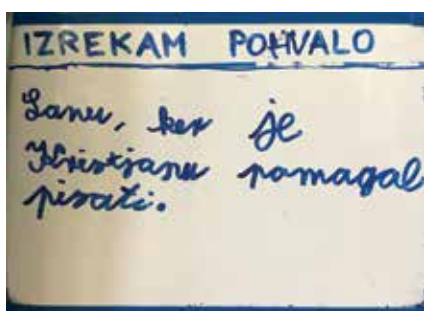 IZREKAM POHVALO
Lanu, ker je
Kristjanu pomagal
pisati.